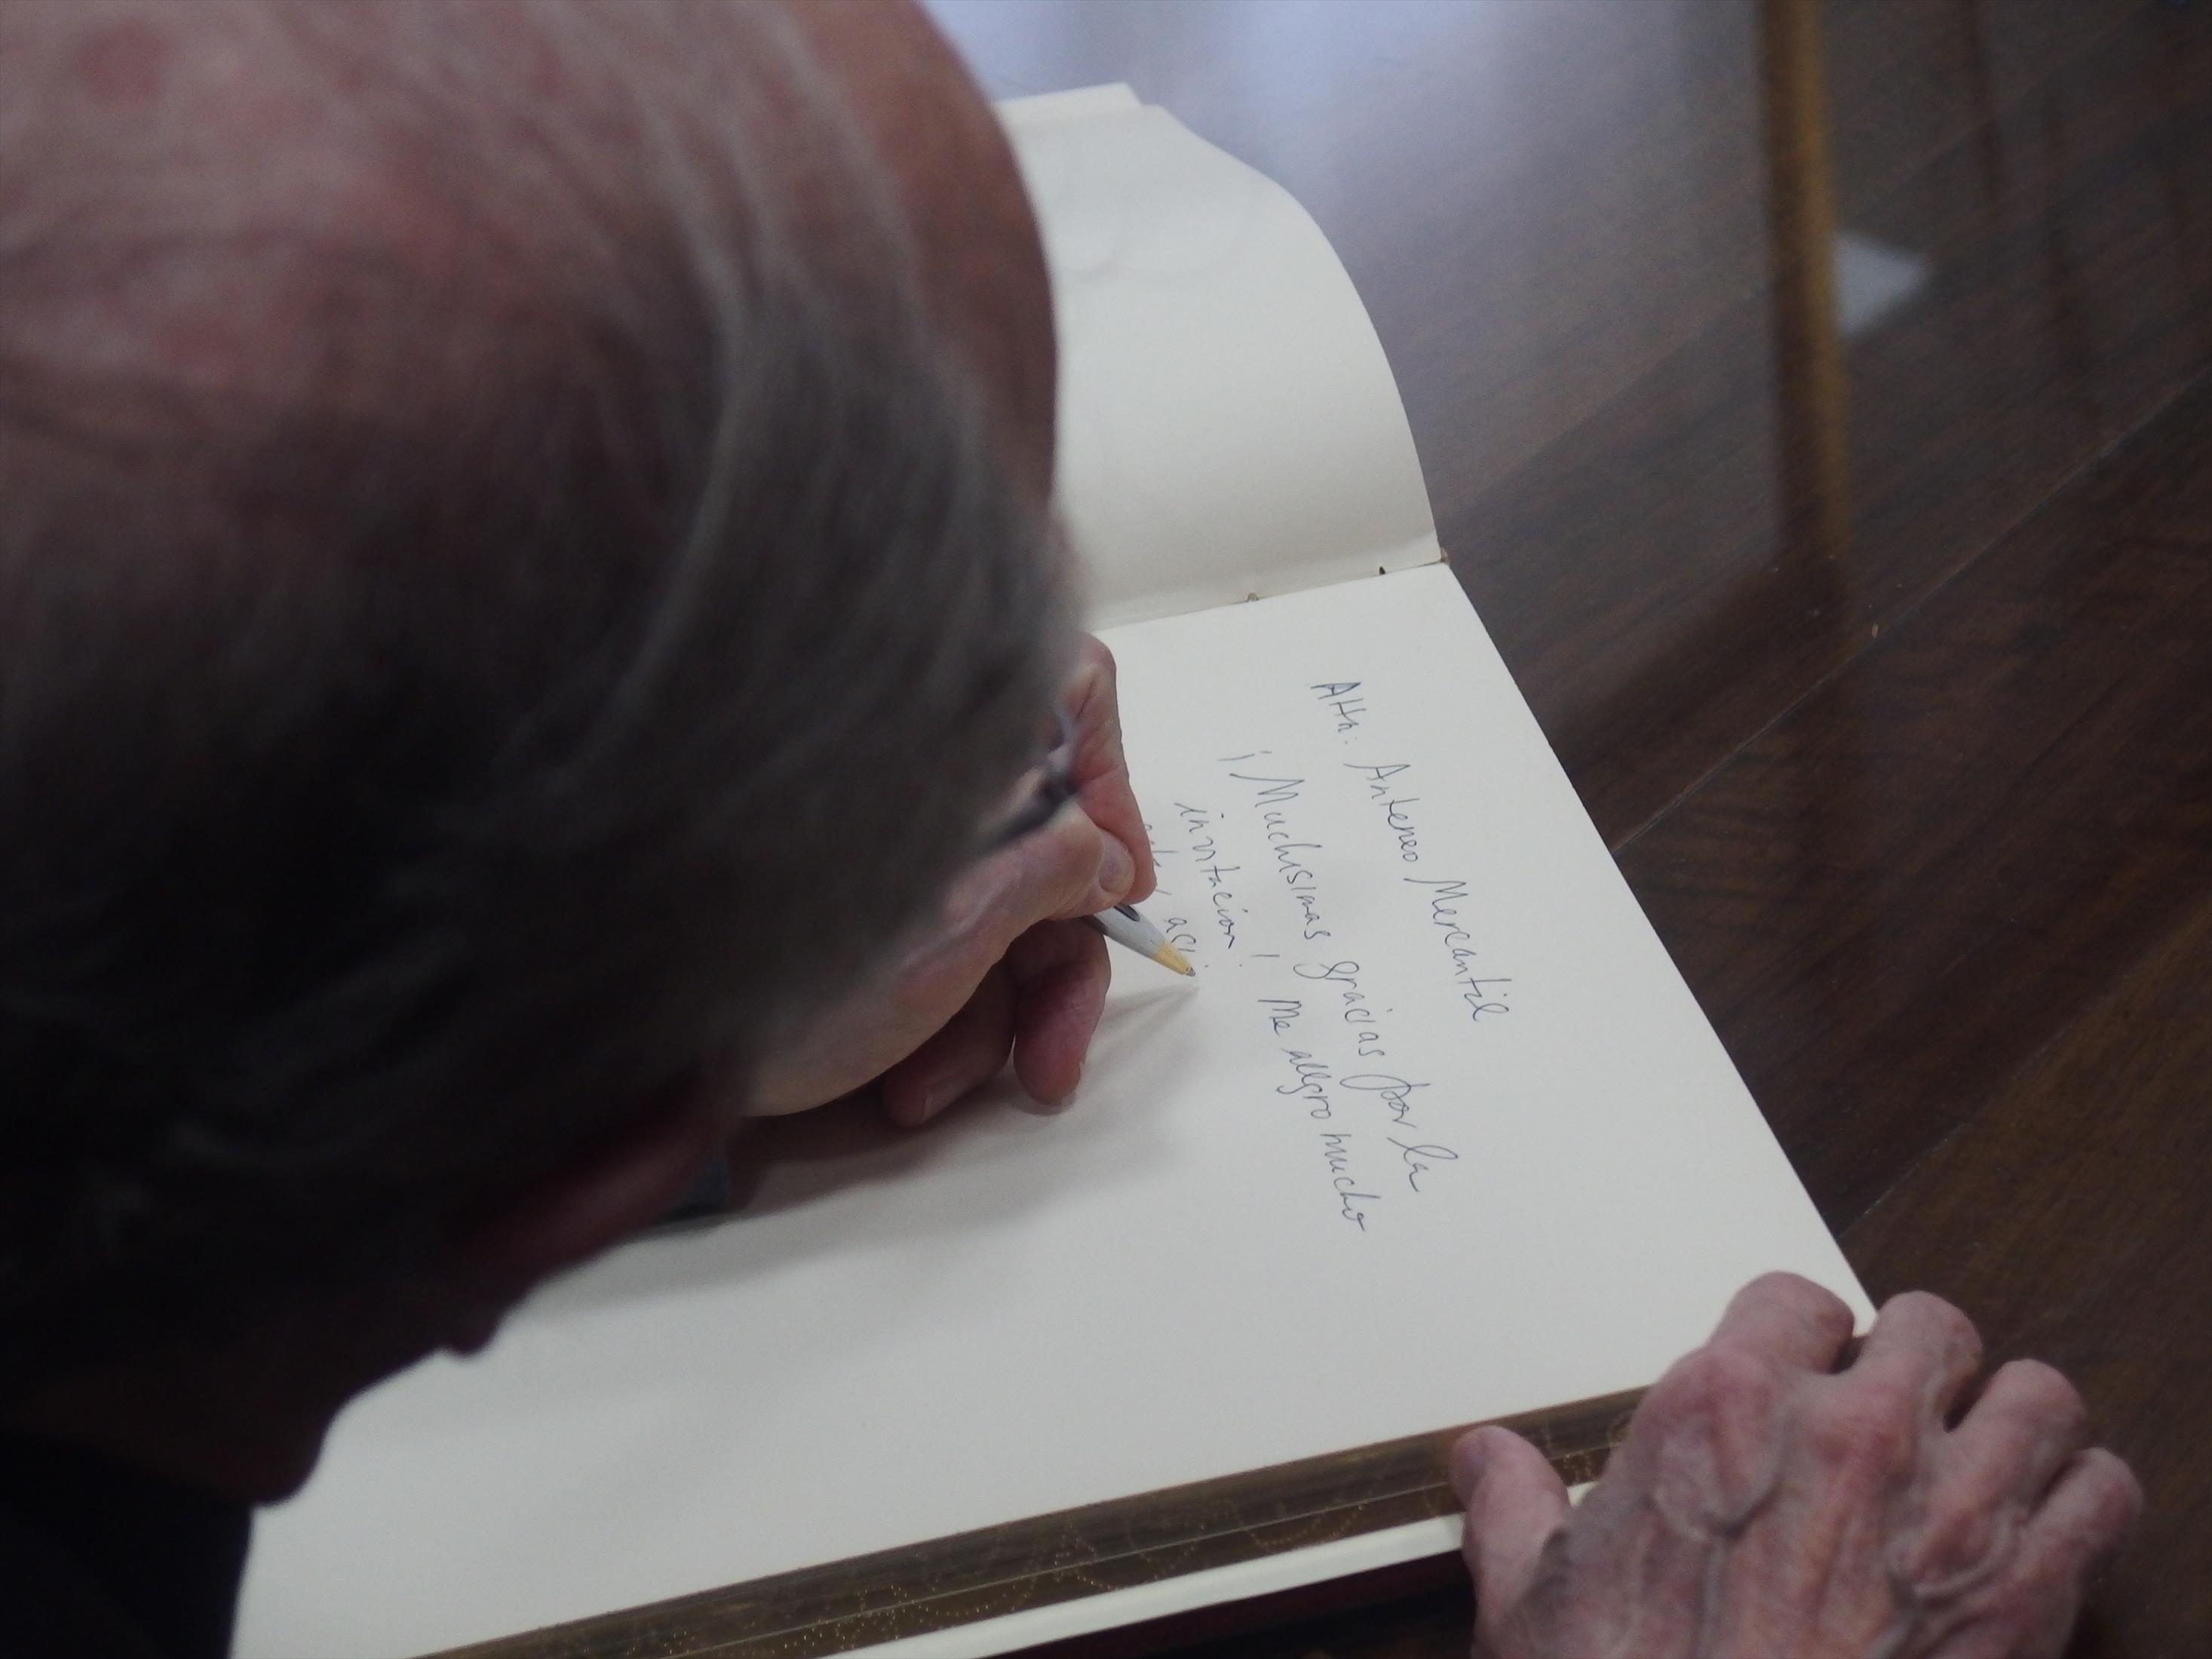 Attn: Anteneo Mercantil
¡Muchísimas gracias por la
invitación! Me alegro mucho
estar aquí